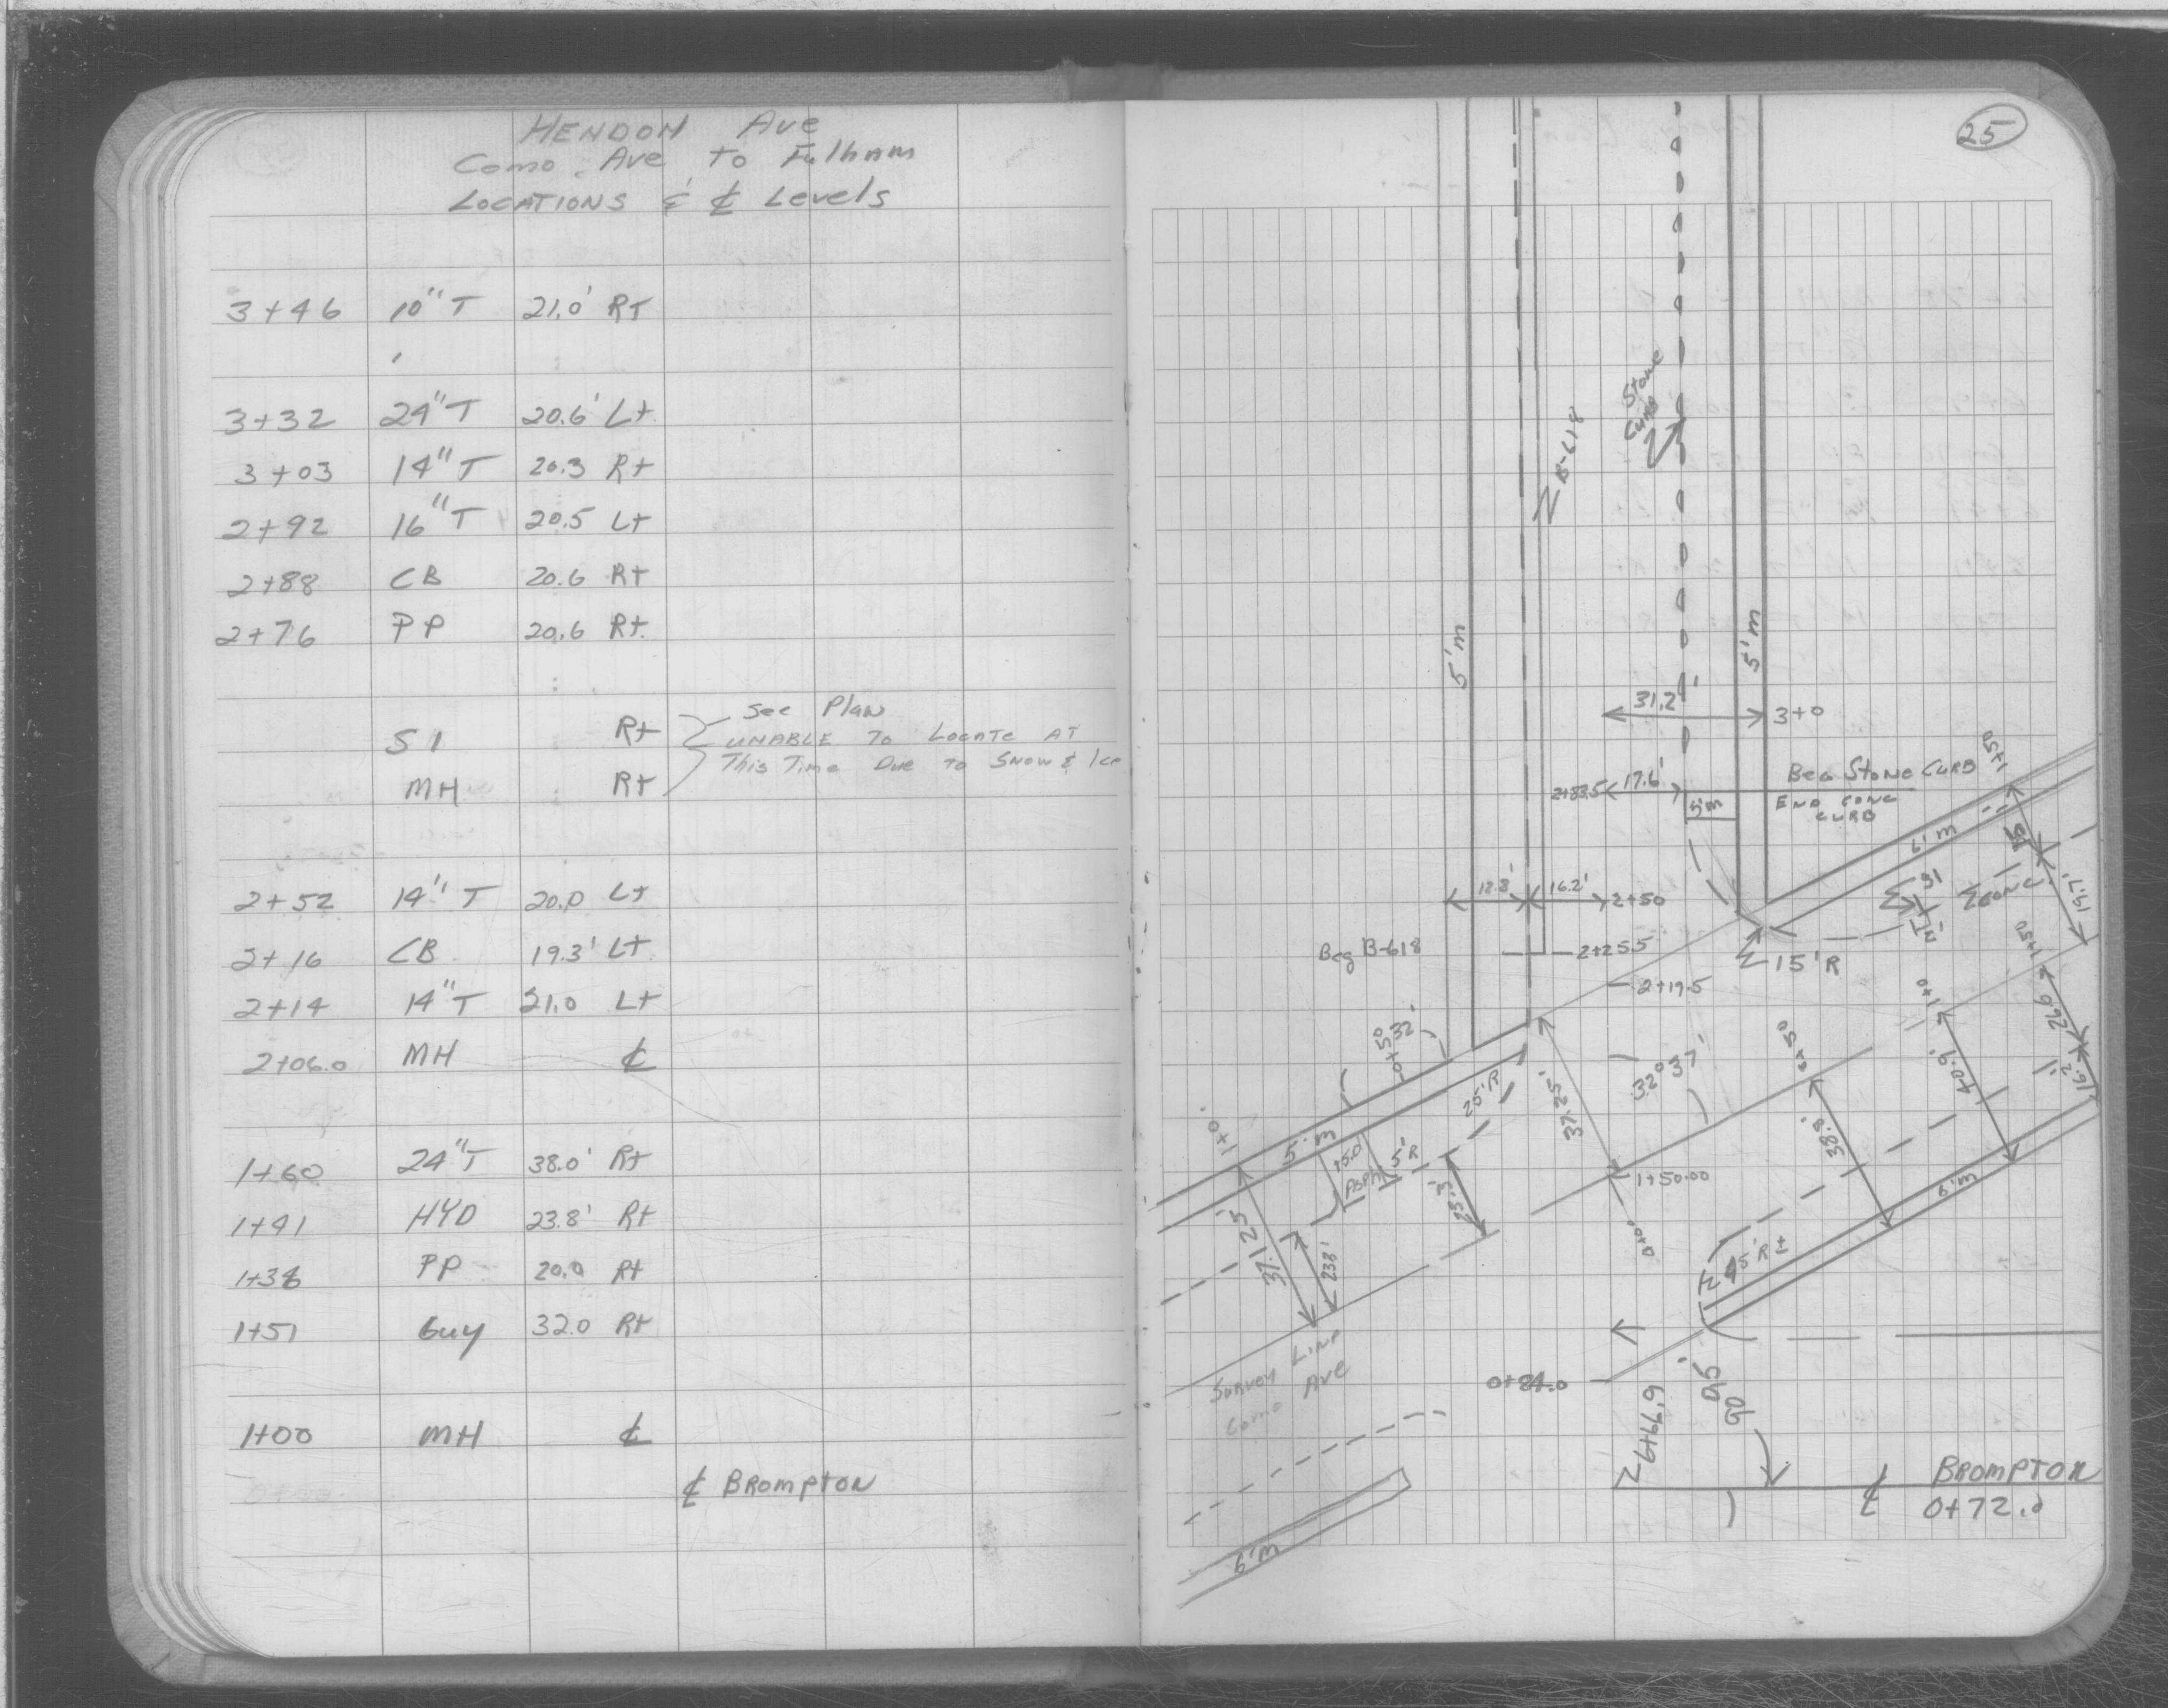 HENDON Ave
Como Ave to Fulham
LOCATIONS & ℄ Levels
3+46 10"T 21.0' Rt
3+32 24"T 20.6' Lt
3+03 14"T 20.3 Rt
2+92 16"T 20.5 Lt
2+88 CB 20.6 Rt
2+76 PP 20.6 Rt.
See Plan
S1 Rt UNABLE TO LOCATE AT
MH Rt This Time Due to Snow & Ice
2+52 14"T 20.0 Lt
2+16 CB 19.3' Lt
2+14 14"T 21.0 Lt
2+06.0 MH ℄
1+60 24"T 38.0' Rt
1+41 HYD 23.8' Rt
PP 20.0 Rt
1+51 Guy 32.0 Rt
1+00 MH ℄
℄ BROMPTON
25
Stone
Curb
B-618
5'm
5'm
31.2'
3+0
17.6'
2+83.5
5'm
Beg Stone Curb
END CONC
CURB
1+50
6'm
CONC.
19.7'
16.2'
2+50
Beg B-618
2+25.5
15'R
2+19.5
1+50
1+0
26.6
16.2'
0+50
40.9'
32°37'
38.8'
0+50
32'
25'R
37.25'
1+0
5'm
15.0
Asph
5'R
25.3'
1+50.00
0+0
6'm
37.25'
23.8'
45'R±
Survey Line
Como Ave
0+84.0
6+66.9
℄ BROMPTON
0+72.0
6'm